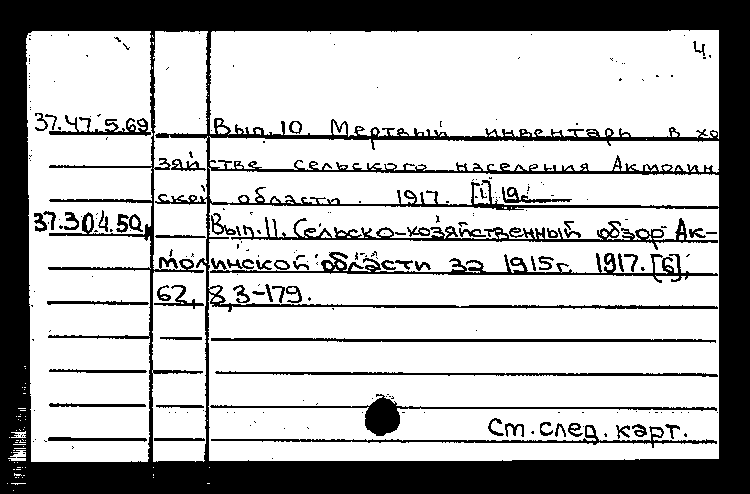 4.
37.47.5.69 Вып.10. Мертвый инвентарь в хо
зяйстве сельского населения Акмолин
ской области. 1917. [1], 19с
37.304.50 Вып.11. Сельско-хозяйственный обзор Ак-
молинской области за 1915г. 1917. [6],
62, 8,3-179.
См. след. карт.